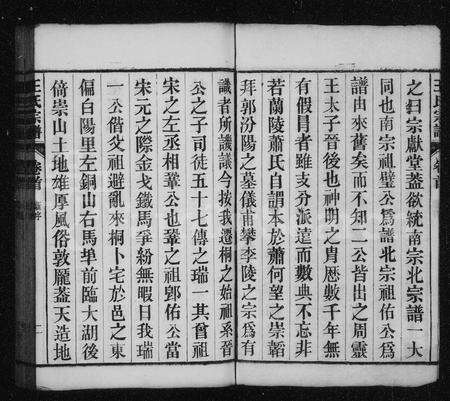 王氏宗譜
卷首
之归宗獻堂蓋欲統南宗北宗譜一大
同也南宗祖璧公為譜北宗祖佑公爲
譜由來舊矣而不知二公皆出之周靈
王太子晉後也神明之胄歷數千年無
有假冒者雖支分派遠而數典不忘非
若蘭陵蕭氏自謂本於蕭何望之崇韜
拜郭汾陽之墓儀甫攀李陵之宗爲有
識者所譏議今按我遷桐之始祖系晉
公之子司徒五十七傳之瑞一其曾祖
宋之左丞相鞏公也鞏之祖郭佑公當
宋元之際金戈鐵馬爭紛無暇日我瑞
一公偕爻祖避亂來桐卜宅於邑之東
偏白陽里左銅山右馬埠前臨大湖後
倚崇山土地雄厚風俗敦龎蓋天造地
王氏宗譜
卷首